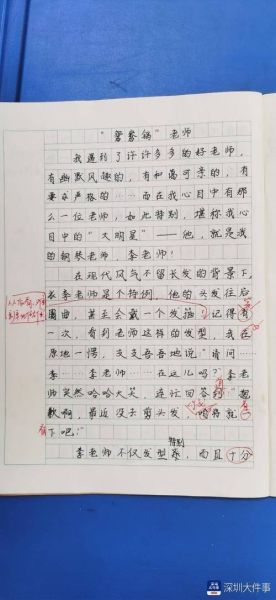 “鸳鸯锅”老师
我遇到了许许多多的好老师，
有幽默风趣的，有和蔼可亲的，有
要求严格的……而在我心目中有那
么一位老师，如此特别，堪称我心
目中的“大明星”——他，就是我
的钢琴老师，李老师！
在现代风气不留长发的背景下，
李老师是个特例，他的头发往后
甚至会戴一个发箍！记得有
一次，看到老师这样的发型，我在
原地一愣，支支吾吾地说：“请问……
李……李老师……在这儿吗？”李老
师突然哈哈大笑，连过回答到“抱
歉啊，最近没去剪头发，
下吧！”
特别
李老师不仅发型 而且十分
深圳大件事